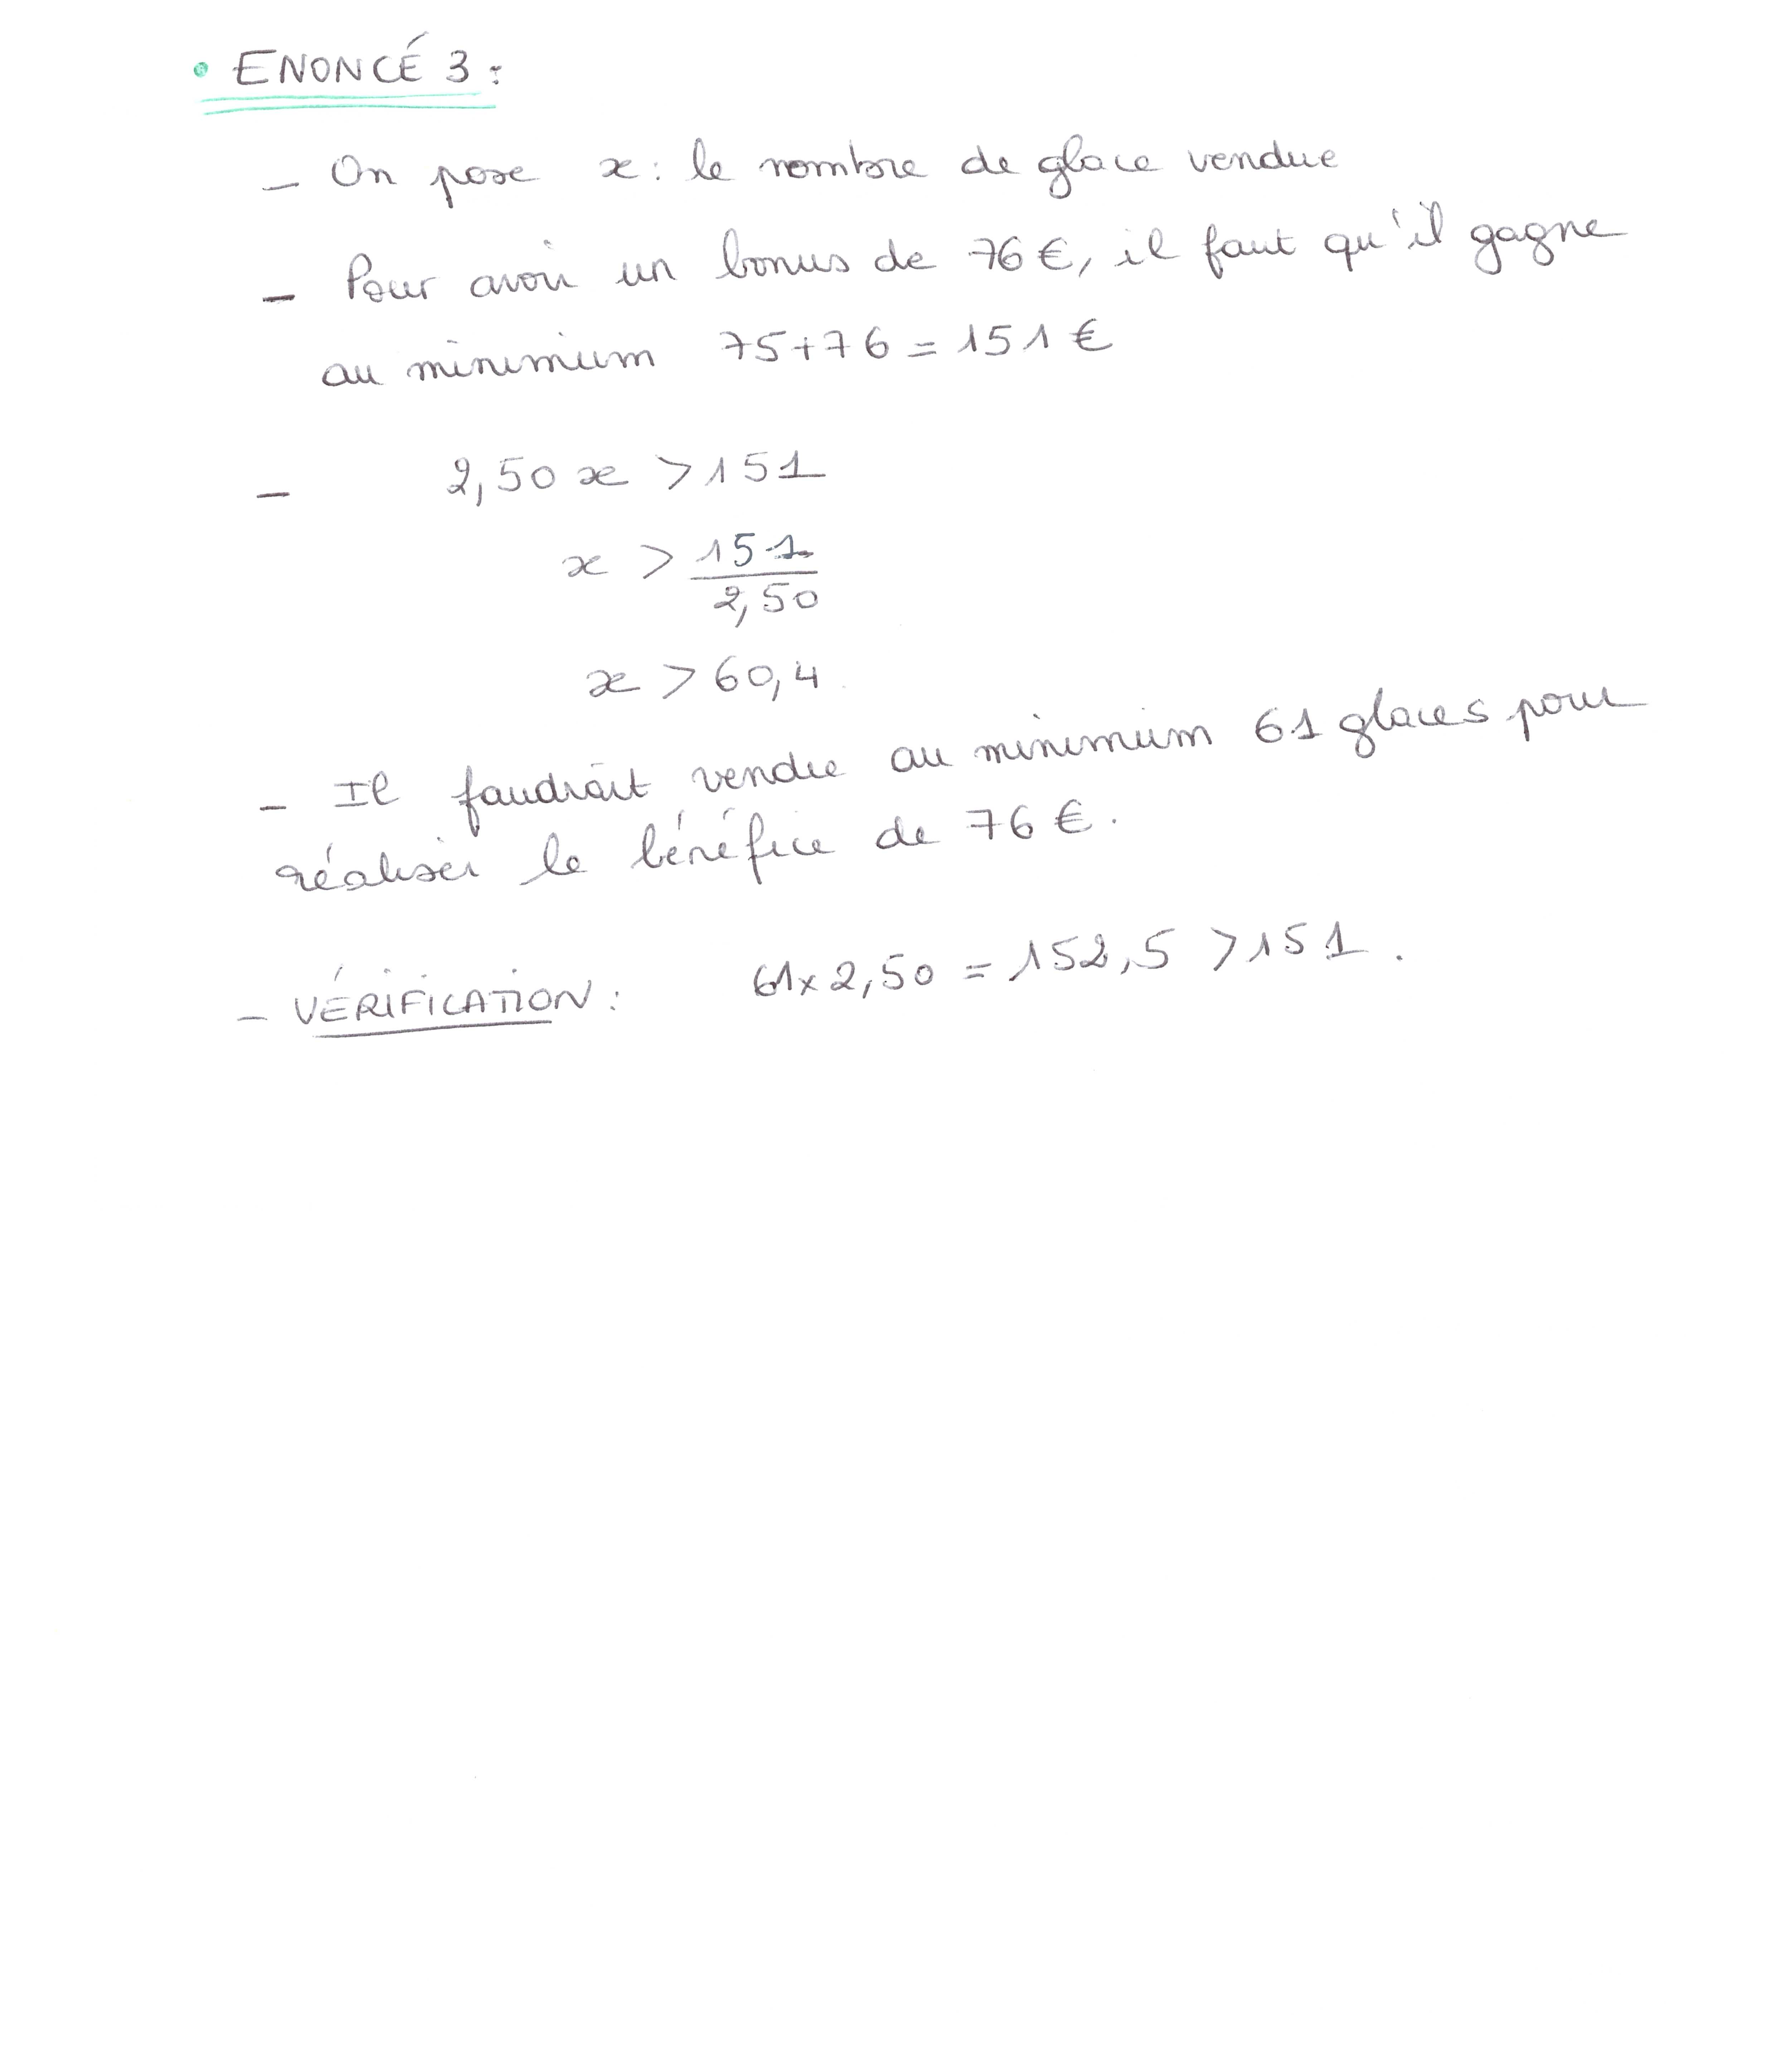 • ENONCÉ 3 :
- On pose x : le nombre de glace vendue
- Pour avoir un bonus de 76 €, il faut qu'il gagne
au minimum 75 + 76 = 151 €
- 2,50 x > 151
x > 151
2,50
x > 60,4
- Il faudrait vendre au minimum 61 glaces pour
réaliser le bénéfice de 76 €.
- VÉRIFICATION : 61 x 2,50 = 152,5 > 151.